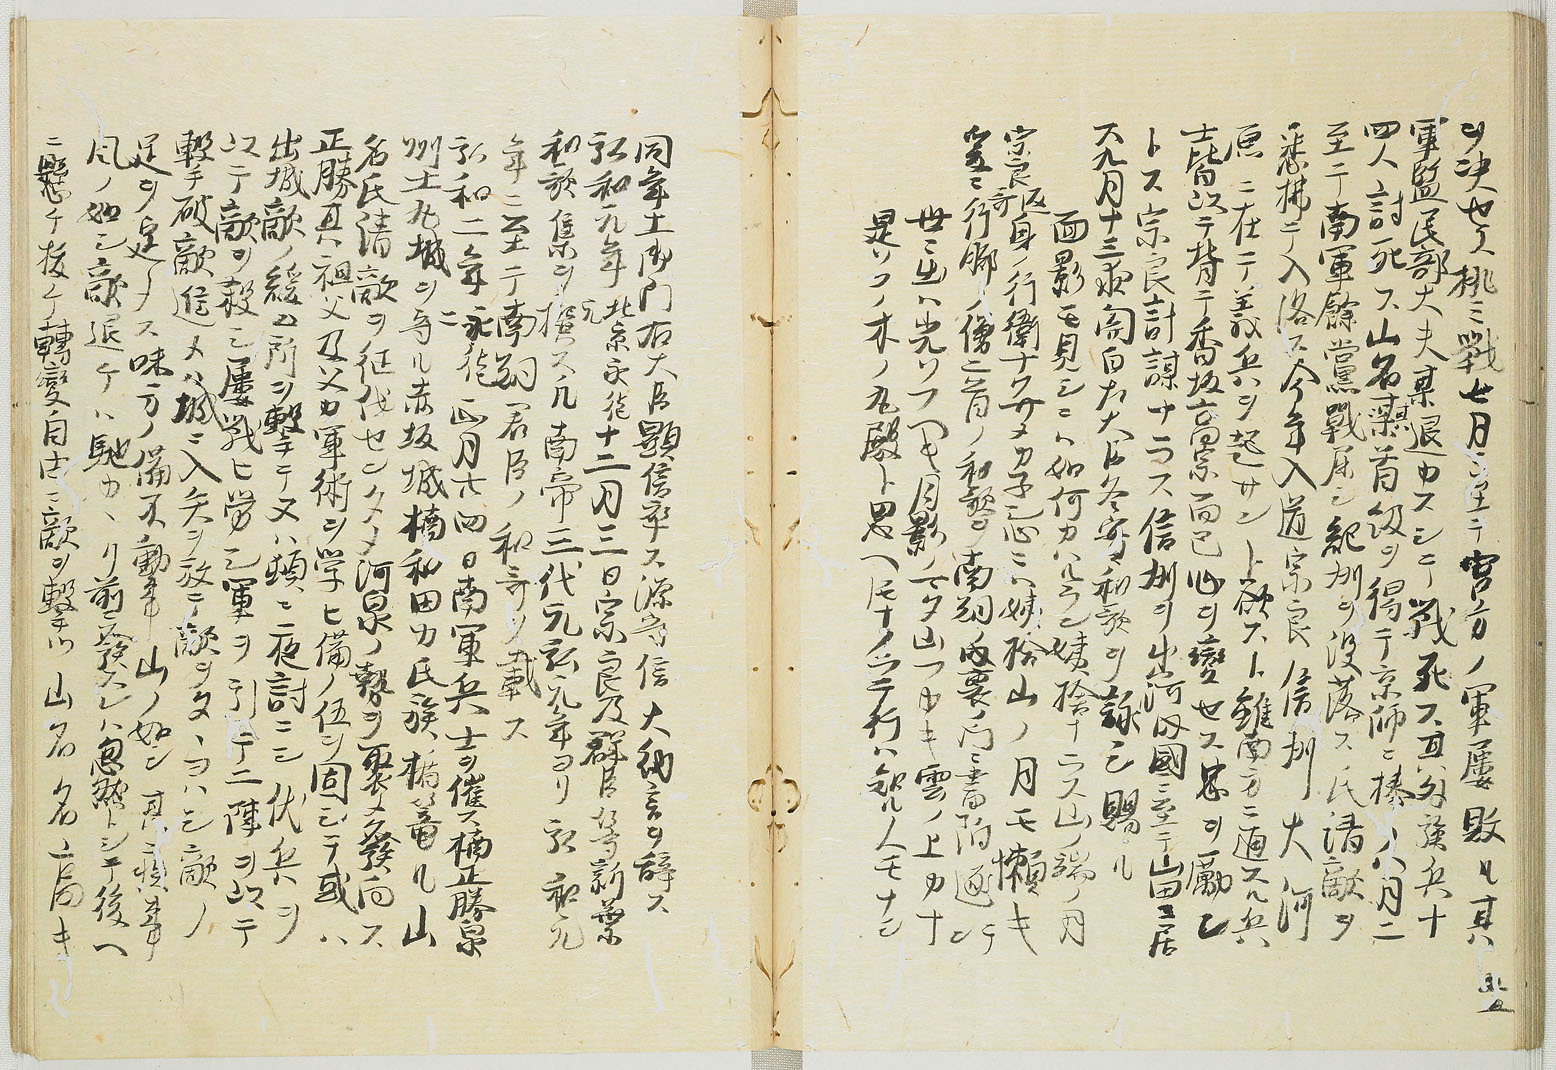 ヲ决セス挑ミ戰七月ニ至テ宮方ノ軍屢敗ル其
軍監民部大夫某退カスシテ戰死ス其外殘兵十
四人討死ス山名某首級ヲ得テ京師ニ捧ク八月ニ
至テ南軍餘黨戰屈シ紀州ヲ沒落ス氏清敵ヲ
悉拂テ入洛ス今年入道宗良信州大河
原ニ在テ義兵ヲ起サント欲スト雖南方ニ通スル兵
士皆以テ背テ香坂高宗而已心ヲ變セス忠ヲ勵シ
トス宗良計謀ナラス信州ヲ出河内國ニ至テ山田ニ居
ス九月十三夜関白左大臣冬実和歌ヲ詠シ賜ル
面影モ見シニハ如何カハルラン姨捨ナラヌ山ノ端ノ月
宗良返哥
身ノ行衛ナクサメカ子シ心ニハ姨捨山ノ月モ懶キ
宝ニ行脚ノ僧二首ノ和歌ヲ南朝ノ内裏ノ門ニ書付逐シテ
世ニ出ハ光ソフヘキ月影ノマタ山フカキ雲ノ上カナ
是ソコノ木ノ丸殿ト思ヘ氏ナノラテ行ハ知ル人モナシ
同年土御門右大臣顕信卒ス源守信大納言ヲ辞ス
弘和元年北京永徳元十二月三日宗良及群臣等新葉
和歌集ヲ撰ス凡南帝三代元弘元年ヨリ弘和元
年ニ至テ南朝君臣ノ和哥ヲ載ス
弘和二年永徳二正月廿四日南軍兵士ヲ催ス楠正勝泉
州土丸城ヲ守ル赤坂城楠和田カ民族楯篭ル山
名氏清敵ヲ征伐センタメ河泉ノ勢ヲ聚メ發向ス
正勝其祖父及父カ軍術ヲ学ヒ備ノ伍ヲ固シテ或ハ
出城敵ノ緩ム所ヲ擊テ又ハ頻ニ夜討ニシ伏兵ヲ
以テ敵ヲ殺シ屢戰ヒ労シ軍ヲ引テ二陣ヲ以テ
擊手破敵進メハ城ニ入矢ヲ放テ敵ヲタヽヨハシ敵ノ
足ヲ定メス味方ノ備不動事山ノ如シ其疾事
風ノ如シ敵退テハ馳カヽリ前ニ發スレハ忽然トシテ後ヘ
ニ懸テ扱ケ轉變自由ニ敵ヲ擊ツ山名名ニ高キ